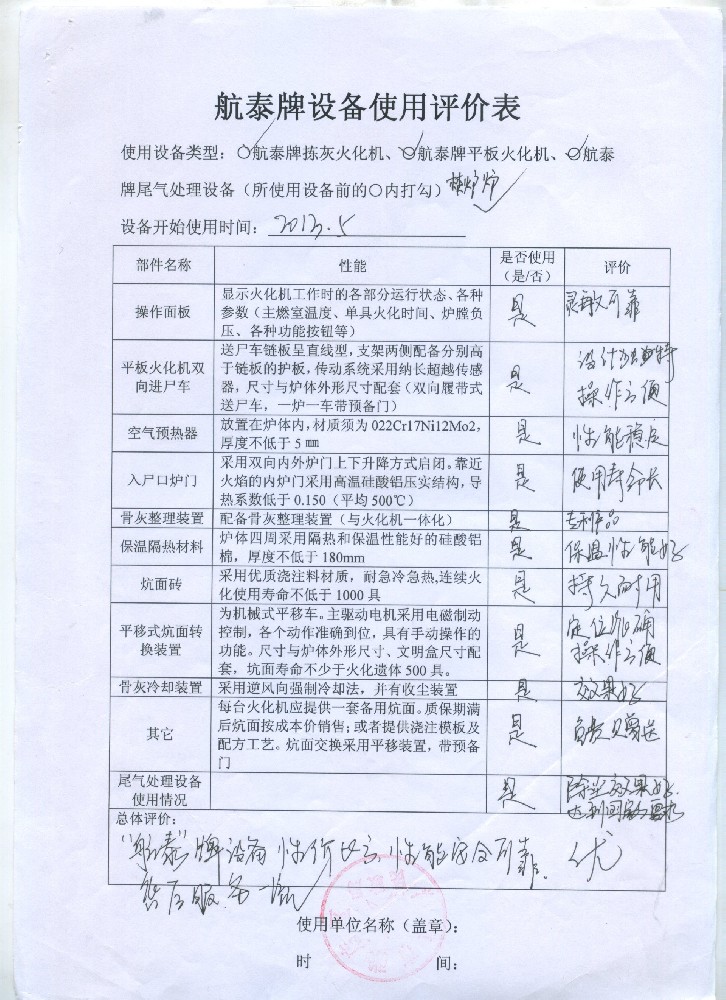 航泰牌设备使用评价表
使用设备类型：○航泰牌拣灰火化机、○航泰牌平板火化机、○航泰
牌尾气处理设备（所使用设备前的○内打勾）
设备开始使用时间：2013.5
部件名称 性能 是否使用（是/否） 评价
操作面板 显示火化机工作时的各部分运行状态、各种 是 灵敏可靠
参数（主燃室温度、单具火化时间、炉膛负
压、各种功能按钮等）
平板火化机双向进尸车 送尸车链板呈直线型，支架两侧配备分别高 是 设计
于链板的护板，传动系统采用纳长超越传感 操作方便
器，尺寸与炉体外形尺寸配套（双向履带式
送尸车，一炉一车带预备门）
空气预热器 放置在炉体内，材质须为 022Cr17Ni12Mo2， 是 性能稳定
厚度不低于 5 ㎜
入尸口炉门 采用双向内外炉门上下升降方式启闭。靠近 是 使用寿命长
火焰的内炉门采用高温硅酸铝压实结构，导
热系数低于 0.150（平均 500℃）
骨灰整理装置 配备骨灰整理装置（与火化机一体化） 是 专利产品
保温隔热材料 炉体四周采用隔热和保温性能好的硅酸铝 是 保温性能好
棉，厚度不低于 180mm
炕面砖 采用优质浇注料材质，耐急冷急热，连续火 是 持久耐用
化使用寿命不低于 1000 具
平移式炕面转换装置 为机械式平移车。主驱动电机采用电磁制动 是 定位准确
控制，各个动作准确到位，具有手动操作的 操作方便
功能。尺寸与炉体外形尺寸、文明盒尺寸配
套，炕面寿命不少于火化遗体 500 具。
骨灰冷却装置 采用逆风向强制冷却法，并有收尘装置 是 效果好
其它 每台火化机应提供一套备用炕面。质保期满 是 免费赠送
后炕面按成本价销售；或者提供浇注模板及
配方工艺。炕面交换采用平移装置，带预备
门
尾气处理设备使用情况 是 除尘效果好.
达到国家要求
总体评价：
“航泰”牌设备性价比高 性能安全可靠. 优
售后服务一流
使用单位名称（盖章）：
时 间：